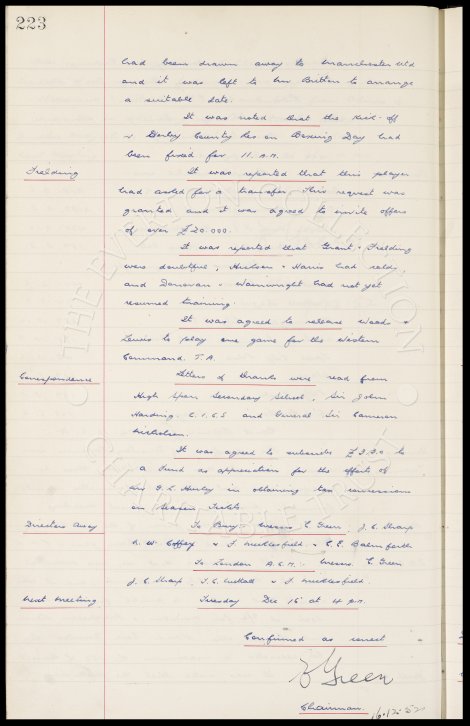 223
had been drawn away to Manchester Utd
and it was left to Mr Britton to arrange
a suitable date.
It was noted that the Kick-off
v Derby County Res on Boxing Day had
been fixed for 11 A.M.
Fielding
It was reported that this player
had asked for a transfer. This request was
granted and it was agreed to invite offers
of over £20.000.
It was reported that Grant & Fielding
were doubtful, & Harris had colds,
and Donovan & Wainwright had not yet
resumed training.
It was agreed to release Woods &
Lewis to play one game for the Western
Command. T.A.
Correspondence
Letters of thanks were read from
High Secondary School, Sir John
Harding. C.I.G.S and General Sir Cameron
Nicholson.
It was agreed to subscribe £3.3.0 to
a Fund as appreciation for the efforts of
in obtaining tax concessions
on Season Tickets.
Directors Away
To Bury. Messrs E Green, J.C. Sharp
R. W. & F. Micklesfield & C.E. Balmforth
To London A.G.M. Messrs. E. Green
J. C. Sharp. & F. Micklesfield.
Next Meeting
Tuesday Dec 16 at 4 p.m.
Confirmed as correct
E Green
Chairman. 16.12.52
THE EVERTON COLLECTION
CHARITABLE TRUST